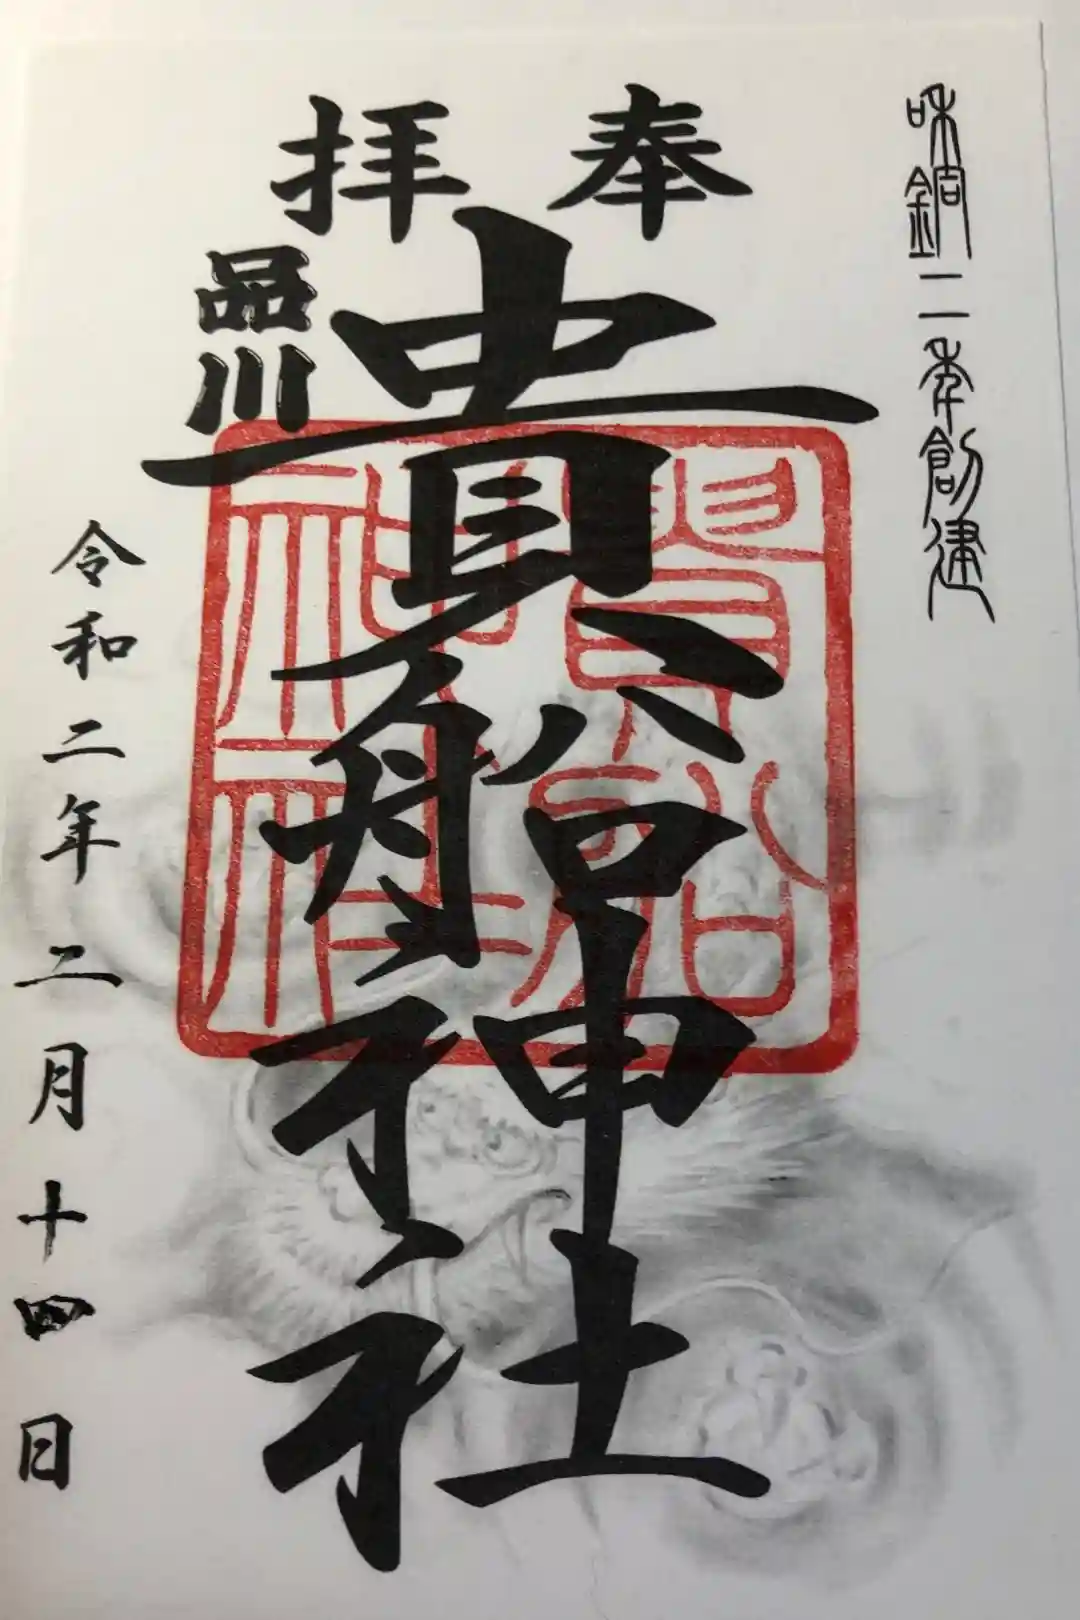 和銅二年創建
奉拝
貴船神社
貴船
神社
品川
令和二年二月十四日